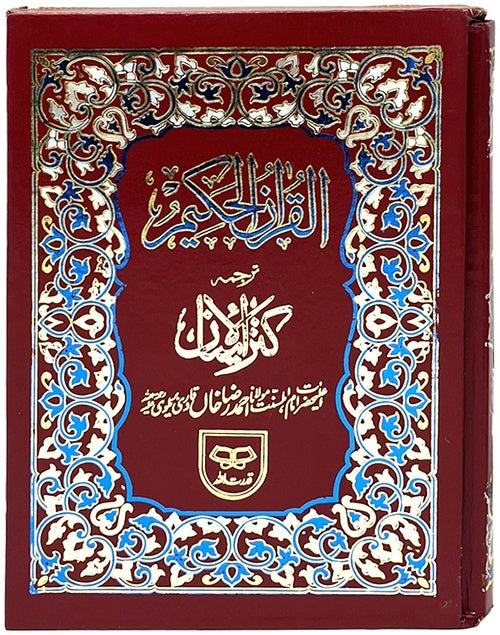 القرآن الحکیم
ترجمہ
کنزالایمان
اعلیٰحضرت امام اہلسنت مولانا احمد رضا خاں قادری بریلوی
قدرت اللہ